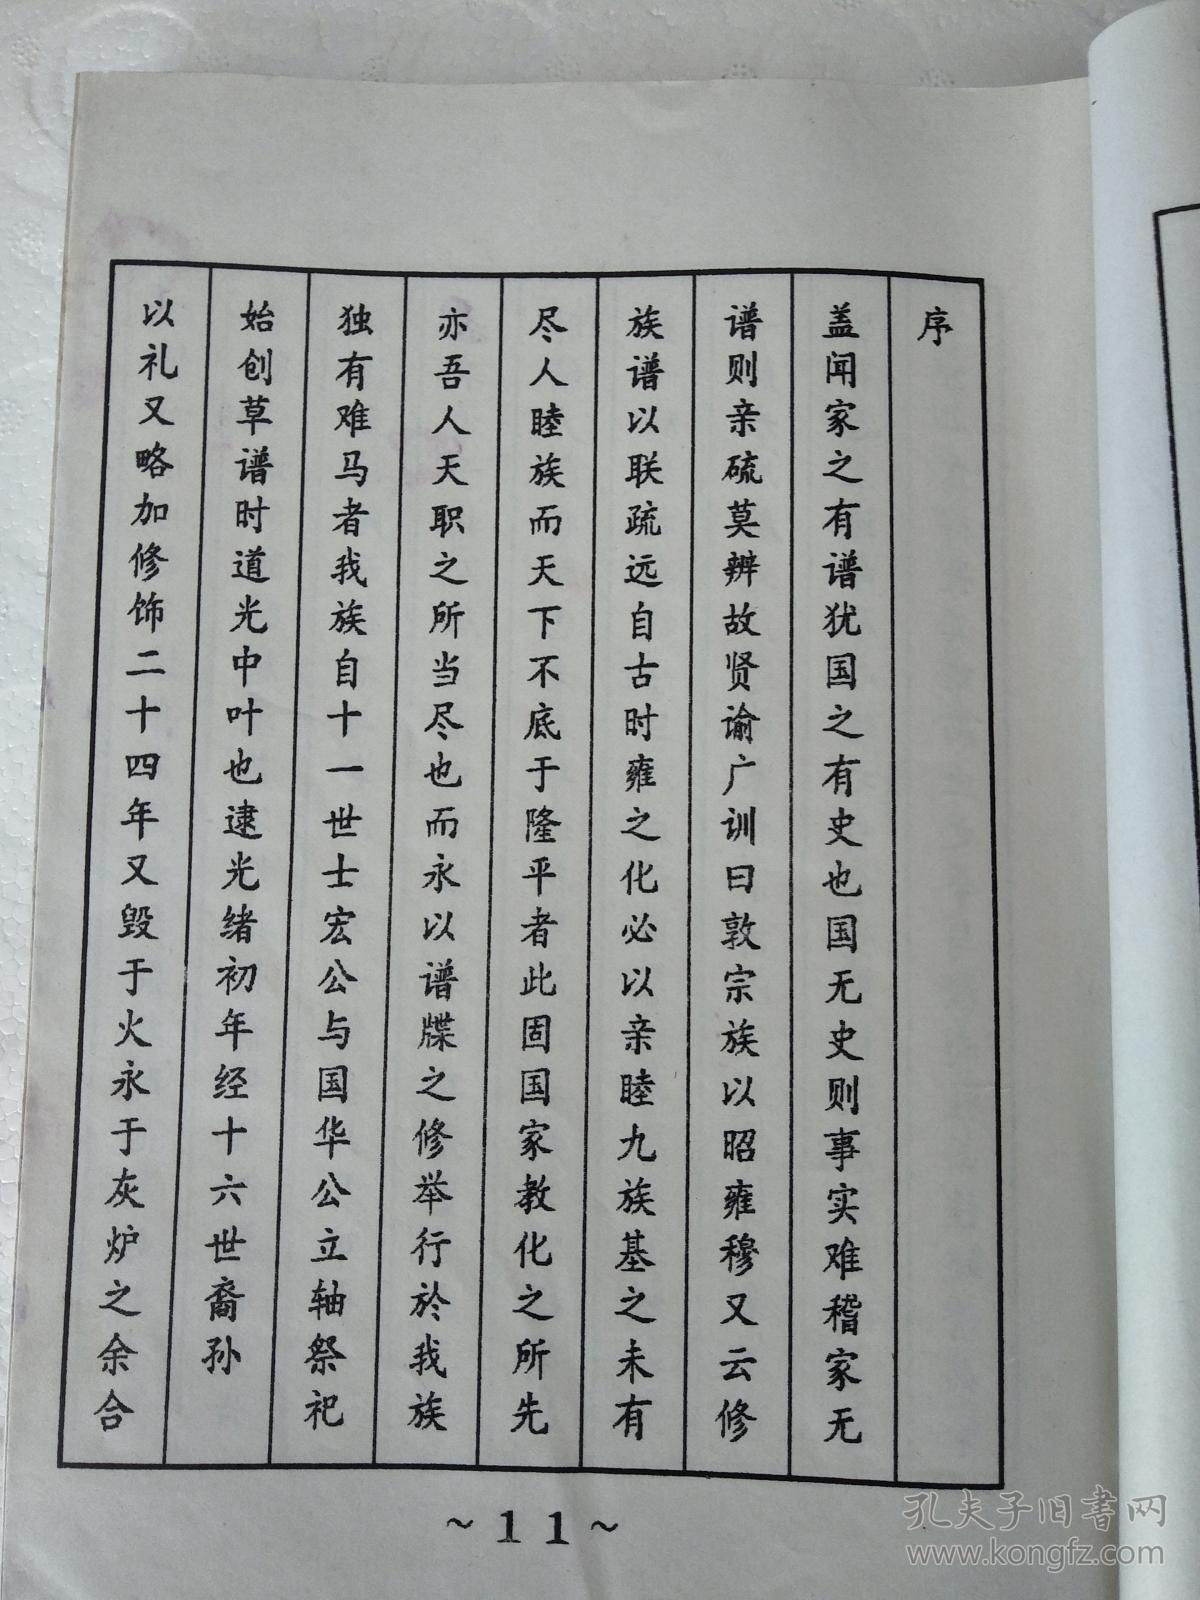 序
盖闻家之有谱犹国之有史也国无史则事实难稽家无
谱则亲硫莫辨故贤谕广训曰敦宗族以昭雍穆又云修
族谱以联疏远自古时雍之化必以亲睦九族基之未有
尽人睦族而天下不底于隆平者此固国家教化之所先
亦吾人天职之所当尽也而永以谱牒之修举行於我族
独有难马者我族自十一世士宏公与国华公立轴祭祀
始创草谱时道光中叶也逮光绪初年经十六世裔孙
以礼又略加修饰二十四年又毁于火永于灰炉之余合
~11~
孔夫子旧书网
www.kongfz.com